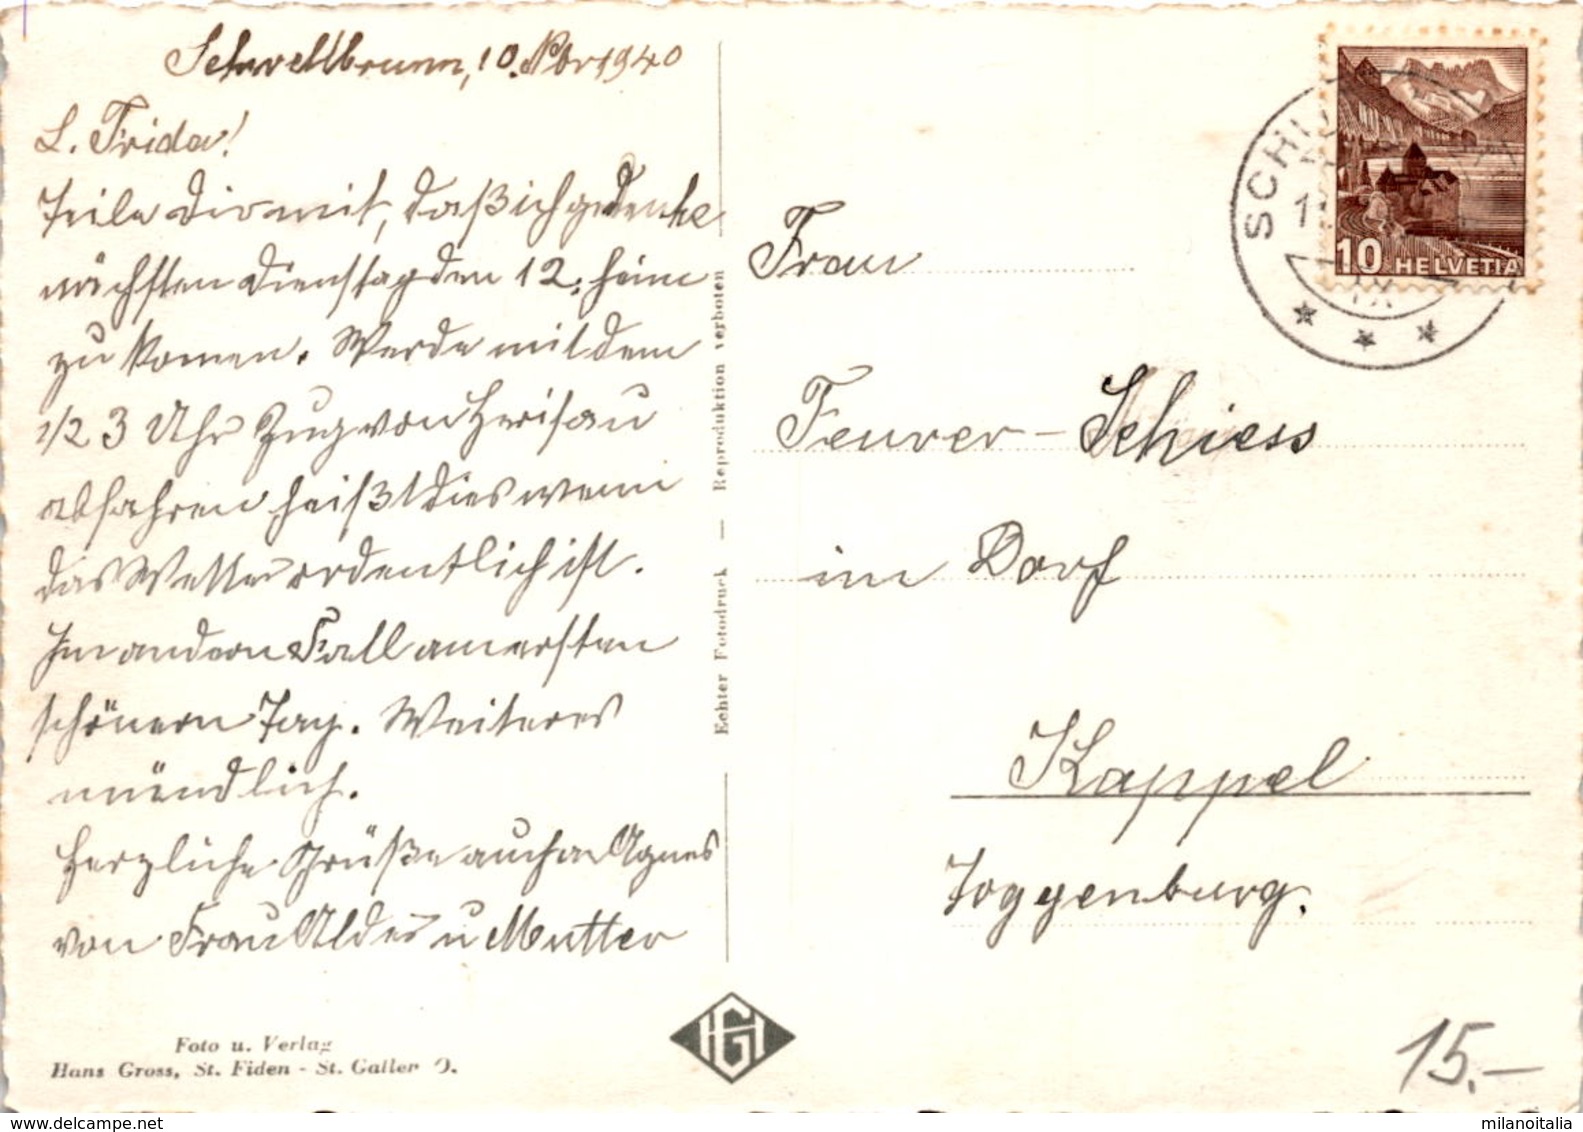 Schwellbrunn, 10. Nbr 1940
L. Frida!
Teile Dir mit, daß ich gedenke
nächsten Dienstag den 12. heim
zu komen. Werde mit dem
1/2 3 Uhr Zug von Herisau
abfahren heißt dies wenn
das Wetter ordentlich ist.
Im andern Fall am ersten
schönern Tag. Weiteres
mündlich.
Herzliche Grüße auch a Agnes
von Frau Alder u Mutter
Foto u. Verlag
Hans Gross, St. Fiden - St. Gallen O.
Echter Fotodruck — Reproduktion verboten
HELVETIA
10
Frau
Feurer-Schiess
im Dorf
Kappel
Toggenburg.
15.-
HG
delcampe.net
milanoitalia